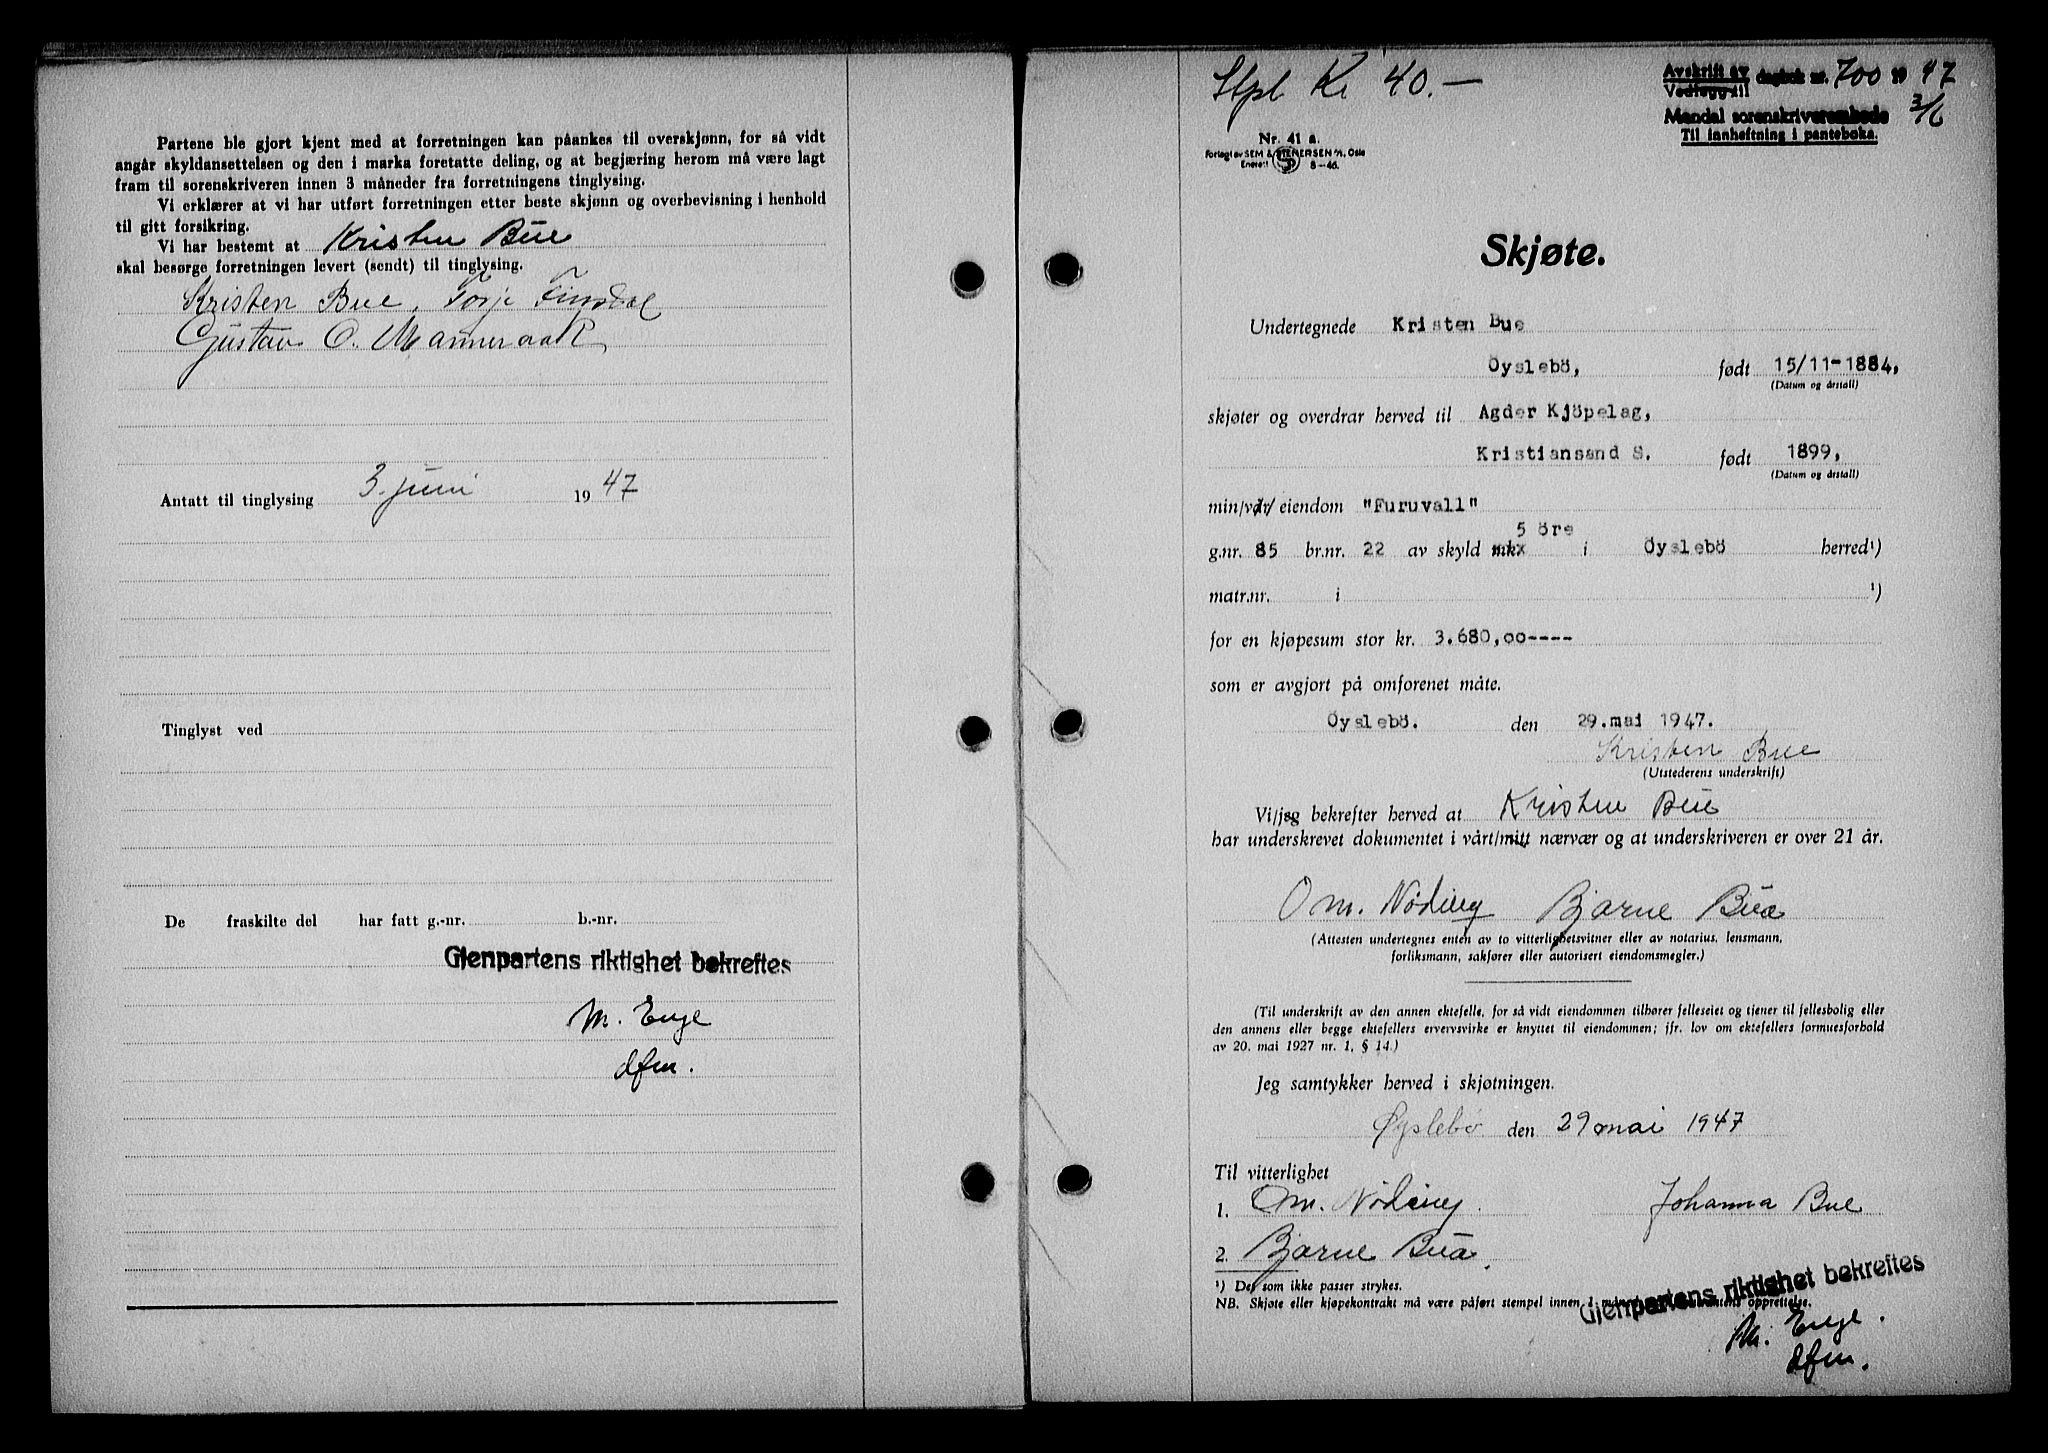 Partene ble gjort kjent med at forretningen kan påankes til overskjønn, for så vidt
angår skyldansettelsen og den i marka foretatte deling, og at begjæring herom må være lagt
fram til sorenskriveren innen 3 måneder fra forretningens tinglysing.
Vi erklærer at vi har utført forretningen etter beste skjønn og overbevisning i henhold
til gitt forsikring.
Vi har bestemt at Kristen Bue
skal besørge forretningen levert (sendt) til tinglysing.
Kristen Bue, Torje Finsdal
Gustav O. Manneraak
Antatt til tinglysing 3. juni 1947
Tinglyst ved
De fraskilte del har fatt g.-nr. b.-nr.
Gjenpartens riktighet bekreftes
M. Enge
dfm.
Stpl Kr 40.-
Avskrift av
Vedlegg til dagbok nr. 700 1947
3/6
Mandal sorenskriverembede
Til innheftning i panteboka.
Nr. 41 a.
Forlagt av SEM & STENERSEN A/S, Oslo
Enerett SP 8-46.
Skjøte.
Undertegnede Kristen Bue
Öyslebö, født 15/11-1884,
(Datum og årstall)
skjøter og overdrar herved til Agder Kjöpelag,
Kristiansand S. født 1899,
(Datum og årstall)
min/vår/ eiendom "Furuvall"
5 öre
g.nr. 85 br.nr. 22 av skyld mkx i Öyslebö herred¹)
matr.nr. i ¹)
for en kjøpesum stor kr. 3.680,00----
som er avgjort på omforenet måte.
Öyslebö. den 29.mai 1947.
Kristen Bue
(Utstederens underskrift)
Vi/jeg bekrefter herved at Kristen Bue
har underskrevet dokumentet i vårt/mitt nærvær og at underskriveren er over 21 år.
Om. Nøding Bjarne Bua
(Attesten undertegnes enten av to vitterlighetsvitner eller av notarius, lensmann,
forliksmann, sakfører eller autorisert eiendomsmegler.)
(Til underskrift av den annen ektefelle, for så vidt eiendommen tilhører felleseiet og tjener til fellesbolig eller
den annens eller begge ektefellers ervervsvirke er knyttet til eiendommen; jfr. lov om ektefellers formuesforhold
av 20. mai 1927 nr. 1, § 14.)
Jeg samtykker herved i skjøtningen.
Øyslebø den 29 mai 1947
Til vitterlighet
1. Om. Nøding. Johanna Bue
2. Bjarne Bua.
¹) Det som ikke passer strykes.
NB. Skjøte eller kjøpekontrakt må være påført stempel innen 1 måned opprettelse.
Gjenpartens riktighet bekreftes
M. Enge.
dfm.